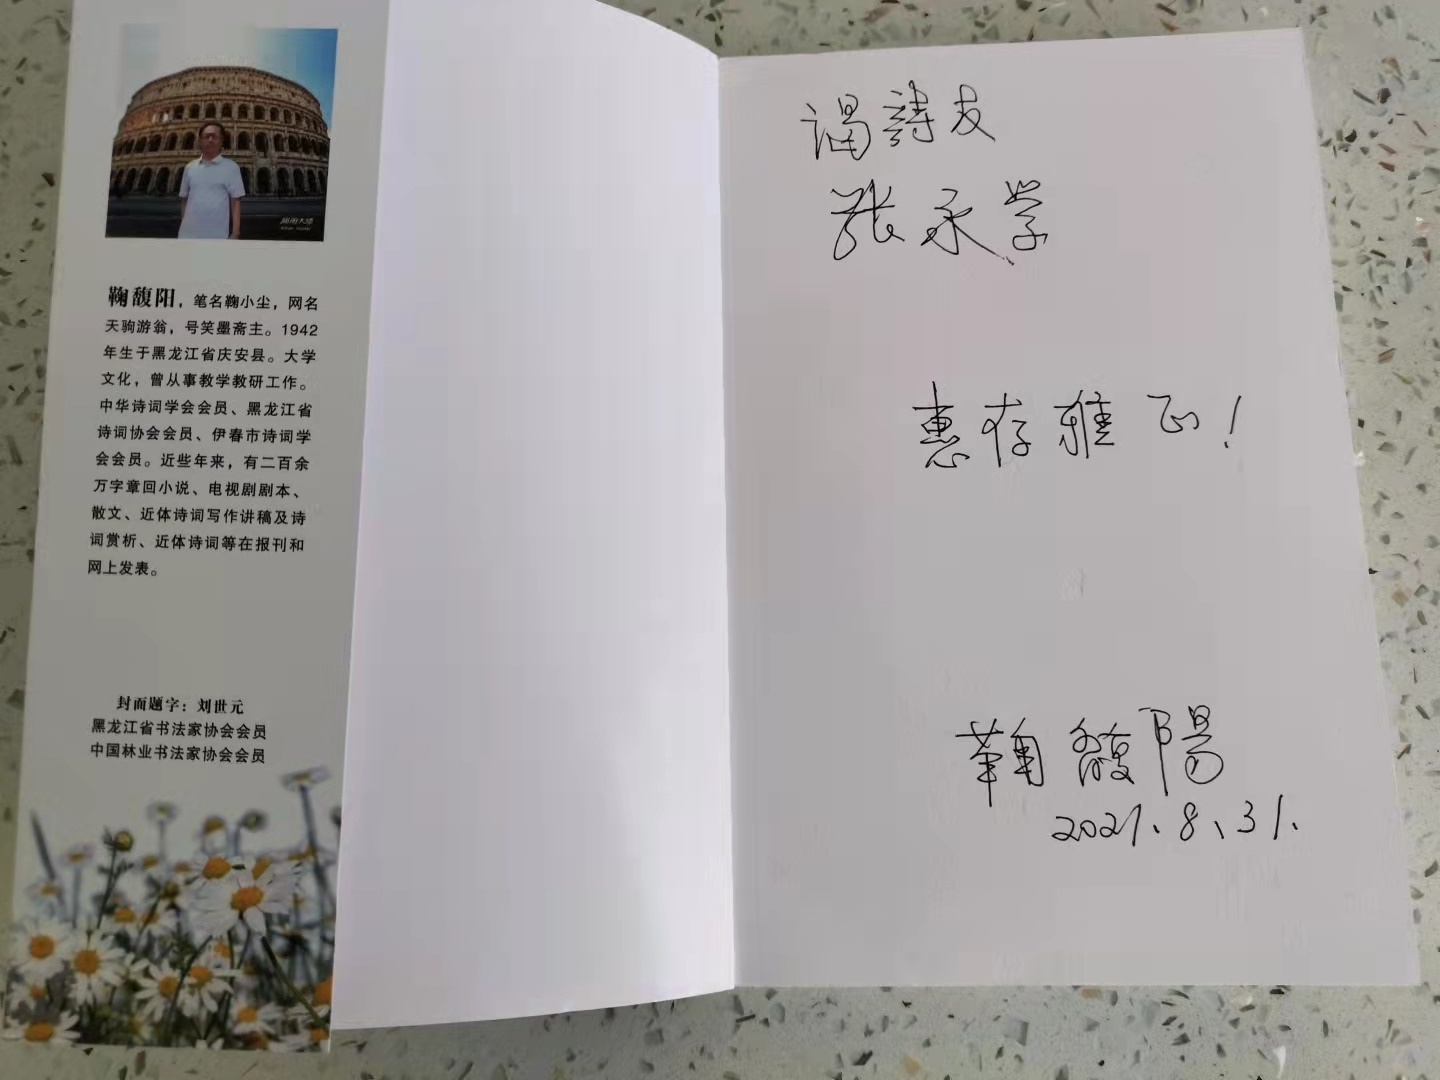 鞠馥阳，笔名鞠小尘，网名
天驹游翁，号笑墨斋主。1942
年生于黑龙江省庆安县。大学
文化，曾从事教学教研工作。
中华诗词学会会员、黑龙江省
诗词协会会员、伊春市诗词学
会会员。近些年来，有二百余
万字章回小说、电视剧剧本、
散文、近体诗词写作讲稿及诗
词赏析、近体诗词等在报刊和
网上发表。
封面题字：刘世元
黑龙江省书法家协会会员
中国林业书法家协会会员
谒詩友
张永学
惠存雅正！
鞠馥陽
2021.8.31.